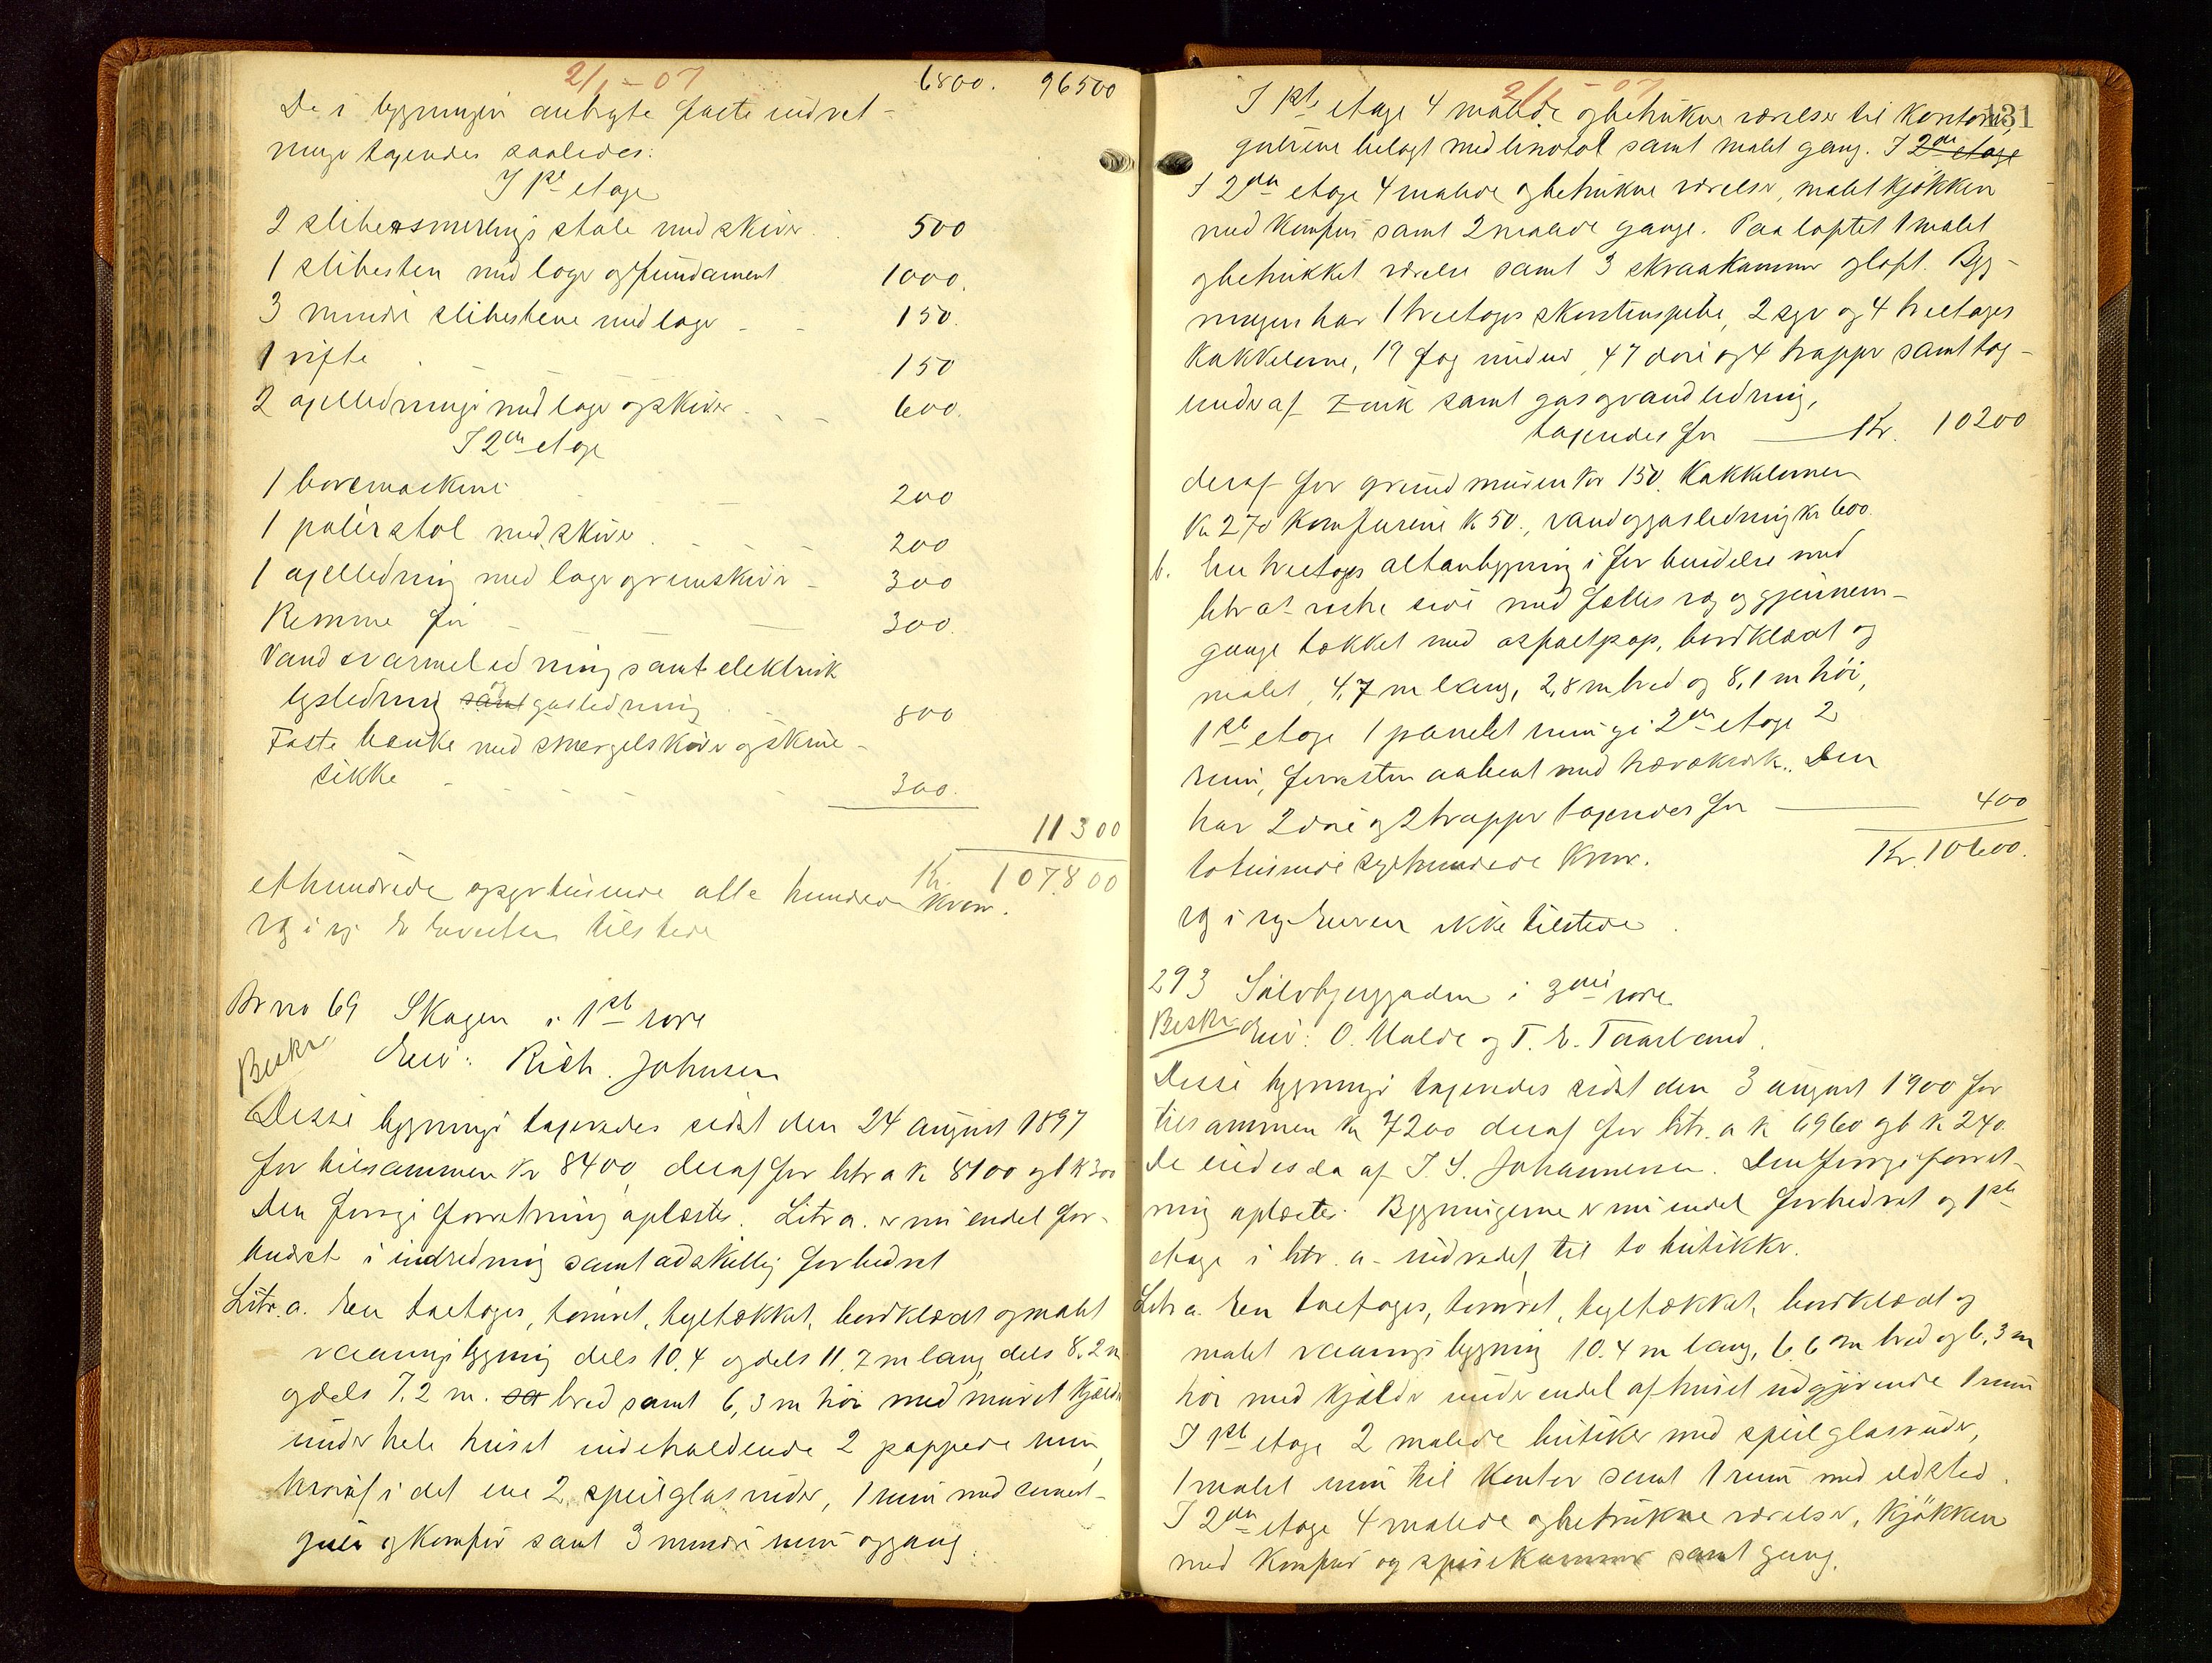 2/1-07
6800. 96500
De i bygningen anbragte faste indret-
ninger taxeredes saaledes:
I 1ste etage
2 slibesmerlingsstole med skiver 500
1 slibesten med lager og fundament 1000.
3 mindre slibestene med lager 150.
1 vifte 150
2 axelledninger med lager og skiver 600.
I 2den etage
1 boremaskine 200
1 polérstol med skiver 200
1 axelledning med lager og remskiver 300
Remme for 300.
Vand varmeledning samt elektrisk
lysledning samt gasledning 800
Faste bænke med smergelskiver og skrue-
stikke 300.
11300
Kr. 107800
ethundrede og syvtusinde otte hundrede Kroner.
Eieren tilstede
Br no 69 Skagen i 1ste rode
Beskr Eier: Rich. Johnsen
Disse bygninger taxeredes sidst den 24 august 1897
for tilsammen Kr 8400, deraf for litr a Kr 8100 og b K 300
Den forrige forretning oplæstes. Litr a. er nu endel for-
andret i indredning samt adskillig forbedret
Litr. a. En toetages, tømret, tegltækket, bordklædt og malet
vaaningsbygning dels 10.4 og dels 11.7 m lang, dels 8.2 m
og dels 7.2 m. sa bred samt 6,3 m høi med muret kjælder
under hele huset indeholdende 2 pappede rum,
hvoraf i det ene 2 speilglasruder, 1 rum med cement-
gulv og Komfur samt 3 mindre rum og gang.
2/1-07
131
I 1ste etage 4 malede og betrukne værelser til Kontorer,
gulvene belagt med linotol samt malet gang. I 2den etage
I 2den etage 4 malede og betrukne værelser, malet Kjøkken
med Komfur samt 2 malede gange. Paa loftet 1 malet
og betrukket værelse samt 3 skraakammer og loft. Byg-
ningen har 1 treetages skorstenspibe, 2 og 4 treetages
Kakkelovne, 19 fag vinduer, 47 døre og 4 trapper samt tag-
render af Zink samt gas og vandledning,
taxeredes for Kr. 10200
deraf for grundmuren Kr 150. Kakkelovnen
Kr 270 Komfurene K 50., vand og gasledning Kr 600.
b. En treetages altanbygning i forbindelse med
litr a's søndre side med fælles væg og gjennem-
gange tækket med asfaltpap, bordklædt og
malet, 4,7 m lang, 2,8 m bred og 8,1 m høi,
1ste etage 1 panelet rum og i 2den etage 2
rum, forresten aabent med trævækværk. Den
har 2 døre og 2 trapper taxeredes for 400
Kr. 10600.
totusinde sexhundrede Kroner.
Eieren ikke tilstede.
293 Sølvbjerggaden i 3die rode
Beskr Eier: O. Malde og T. E. Taarland.
Disse bygninger taxeredes sidst den 3 august 1900 for
tilsammen Kr 7200 deraf for litr. a K 6960 og b K 240.
De eiedes da af J. S. Johannesen. Den forrige forret-
ning oplæstes. Bygningerne er nu endel forbedret og 1ste
etage i litr. a. indredet til to butikker.
Litr a. En toetages, tømret, tegltækket, bordklædt og
malet vaaningsbygning 10.4 m lang, 6.6 m bred og 6.3 m
høi med kjælder under endel af huset udgjørende 1 rum
I 1ste etage 2 malede butiker med speilglasruder,
1 malet rum til Kontor samt 1 rum med ildsted.
I 2den etage 4 malede og betrukne værelser, Kjøkken
med Komfur og spisekammer samt gang.